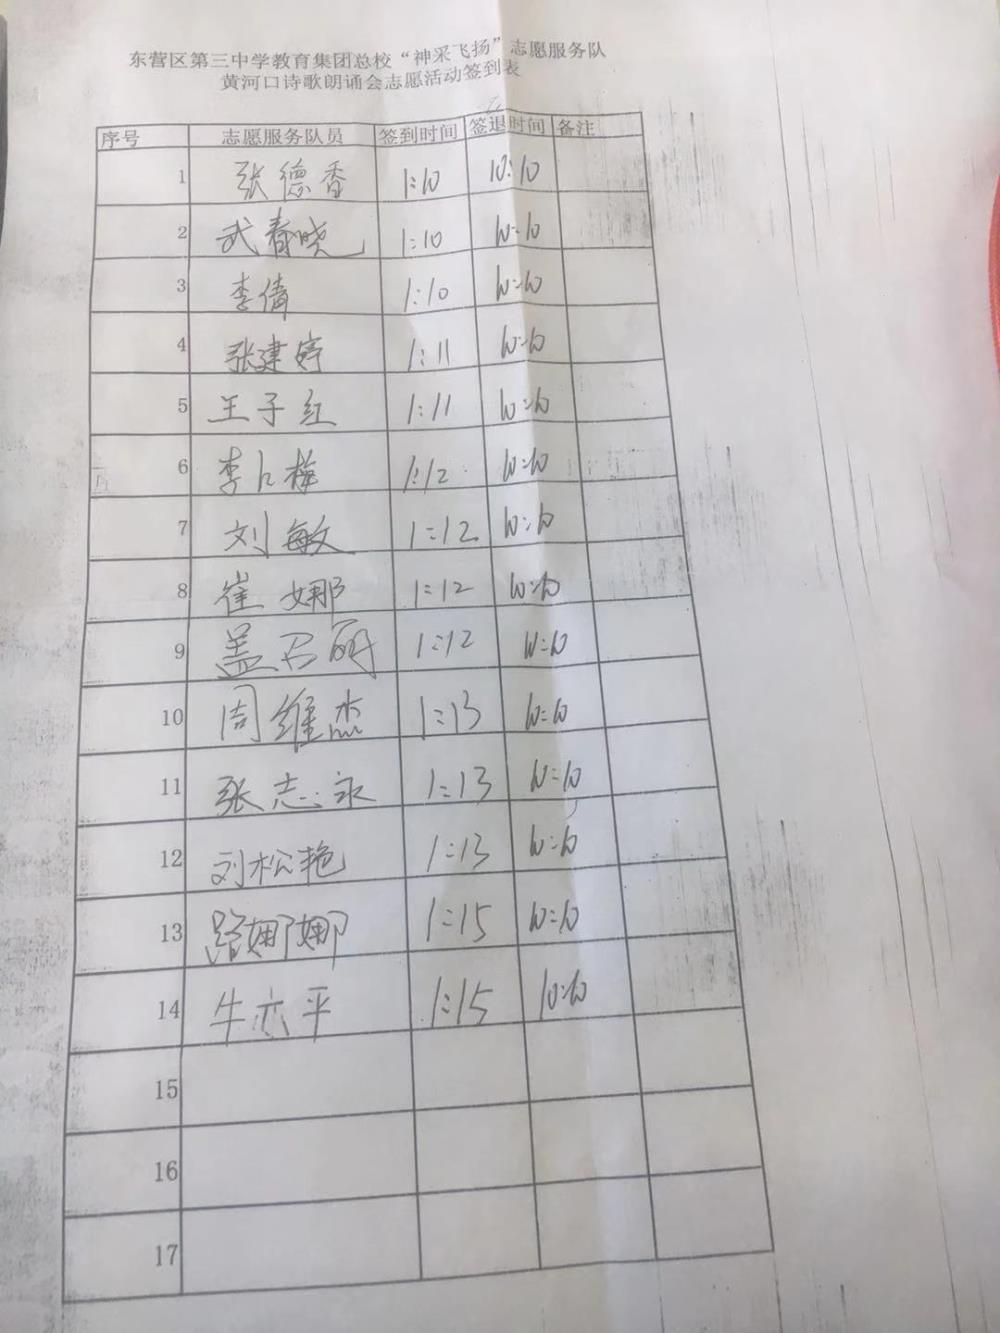 东营区第三中学教育集团总校“神采飞扬”志愿服务队
黄河口诗歌朗诵会志愿活动签到表
序号 志愿服务队员 签到时间 签退时间 备注
1 张德香 1:10 10:10
2 武春晓 1:10 10:10
3 李倩 1:10 10:10
4 张建婷 1:11 10:10
5 王子红 1:11 10:10
6 李 梅 1:12 10:10
7 刘敏 1:12 10:10
8 崔娜 1:12 10:10
9 盖召丽 1:12 10:10
10 周维杰 1:13 10:10
11 张志永 1:13 10:10
12 刘松艳 1:13 10:10
13 路娜娜 1:15 10:10
14 牛亦平 1:15 10:10
15
16
17